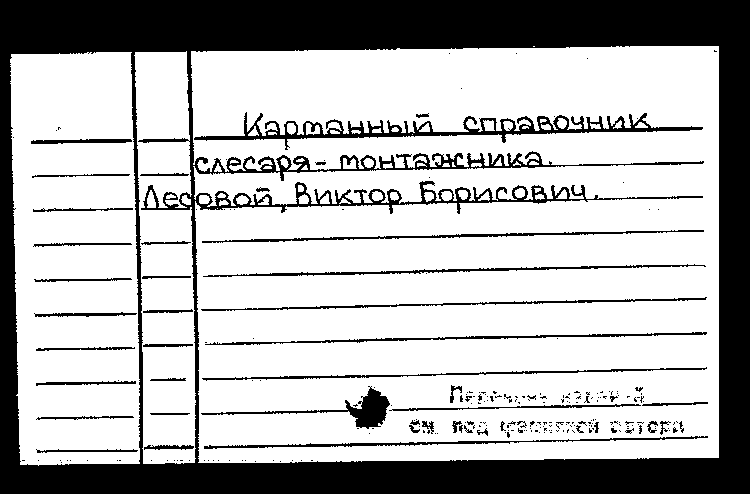 Карманный справочник
слесаря-монтажника.
Лесовой, Виктор Борисович.
Перечень изданий
см. под фамилией автора